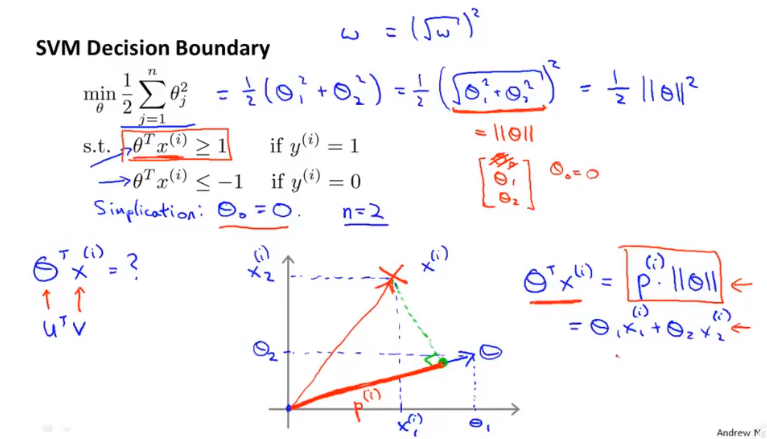 ω = (√ω)²
SVM Decision Boundary
min_θ 1/2 ∑_{j=1}^{n} θ_j² = 1/2 (θ₁² + θ₂²) = 1/2 (√(θ₁² + θ₂²))² = 1/2 ||θ||²
= ||θ||
s.t. θᵀx⁽ⁱ⁾ ≥ 1 if y⁽ⁱ⁾ = 1
θᵀx⁽ⁱ⁾ ≤ −1 if y⁽ⁱ⁾ = 0
[θ₁ θ₂] θ₀ = 0
Simplication: θ₀ = 0. n=2
θᵀx⁽ⁱ⁾ = ?
↑ ↑
uᵀv
x₂⁽ⁱ⁾
x⁽ⁱ⁾
θ₂
θ
p⁽ⁱ⁾
x₁⁽ⁱ⁾
θ₁
θᵀx⁽ⁱ⁾ = p⁽ⁱ⁾ · ||θ|| ←
= θ₁x₁⁽ⁱ⁾ + θ₂x₂⁽ⁱ⁾ ←
Andrew